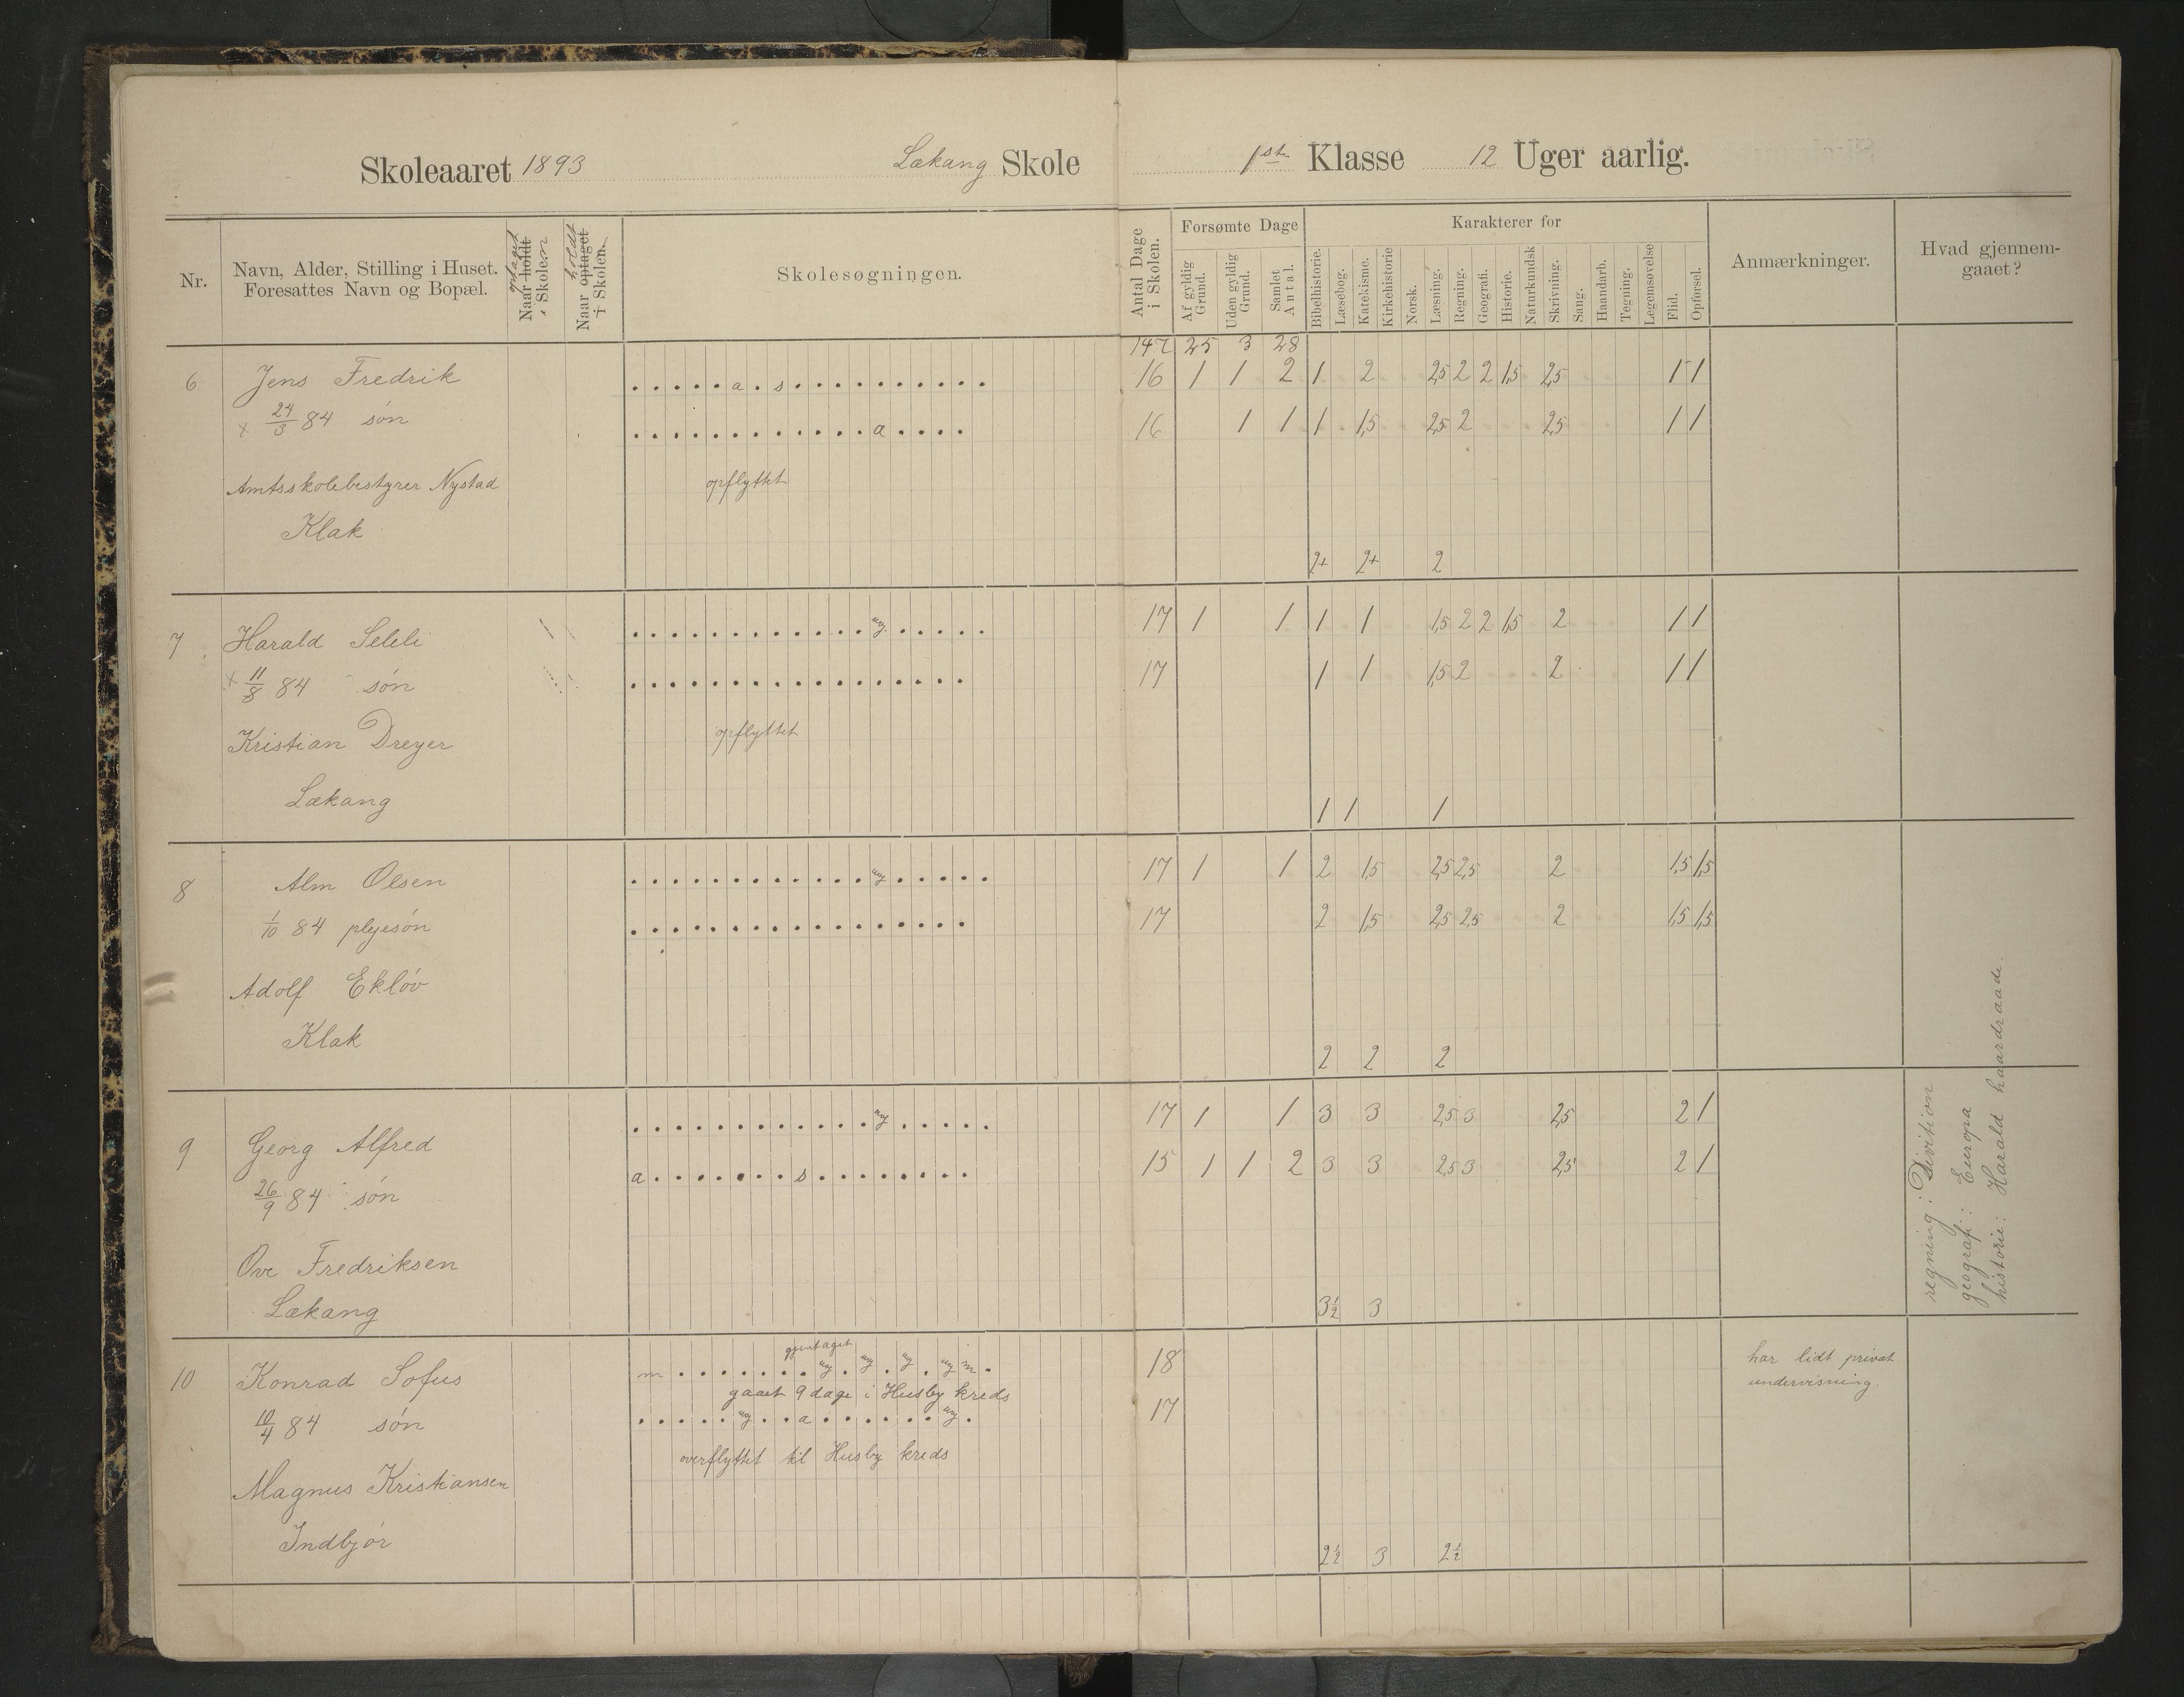 Skoleaaret 1893 Lækang Skole 1ste Klasse 12 Uger aarlig.
Nr.
Navn, Alder, Stilling i Huset.
Foresattes Navn og Bopæl.
optaget
Naar holdt
i Skolen
holdt
Naar optaget
i Skolen.
Skolesøgningen.
Antal Dage
i Skolen.
Forsømte Dage
Af gyldig
Grund.
Uden gyldig
Grund.
Samlet
Antal.
Karakterer for
Bibelhistorie.
Læsebog.
Katekisme.
Kirkehistorie
Norsk.
Læsning.
Regning.
Geografi.
Historie.
Naturkundsk
Skrivning.
Sang.
Haandarb.
Tegning.
Legemsøvelse
Flid.
Opførsel.
Anmærkninger.
Hvad gjennem-
gaaet?
147 25 3 28
6 Jens Fredrik . . . . . a . s . . . . . . . . . . 16 1 1 2 1 2 2,5 2 2 1,5 2,5 1 1
x 24/3 84 søn . . . . . . . . . . . . a . . . . 16 1 1 1 1,5 2,5 2 2,5 1 1
Amtsskolebestyrer Nystad opflyttet
Klak
2+ 2+ 2
7 Harald Seleli . . . . . . . . . . . . ug. . . . . . 17 1 1 1 1 1,5 2 2 1,5 2 1 1
x 11/8 84 søn . . . . . . . . . . . . . . . . . 17 1 1 1,5 2 2 1 1
Kristian Dreyer opflyttet
Lækang
1 1 1
8 Alm Olsen . . . . . . . . . . . . ug . . . . . 17 1 1 2 1,5 2,5 2,5 2 1,5 1,5
1/10 84 plejesøn . . . . . . . . . . . . . . . . . 17 2 1,5 2,5 2,5 2 1,5 1,5
Adolf Ekløv
Klak
2 2 2
9 Georg Alfred . . . . . . . . . . . . ug . . . . . 17 1 1 3 3 2,5 3 2,5 2 1
26/9 84 søn a . . . . . . . s . . . . . . . . 15 1 1 2 3 3 2,5 3 2,5 2 1
Ove Fredriksen
Lækang
3½ 3
regning: Divition
geografi: Europa
historie: Harald haardraade
gjentaget
10 Konrad Sofus m . . . . . . . ug . ug . ug . ug m . 18
har lidt privat
undervisning.
gaaet 9 dage i Husby kreds
10/4 84 søn . . . . . ug . . a . . . . . . ug . 17
overflyttet til Husby kreds
Magnus Kristiansen
Indbjør
2½ 3 2½